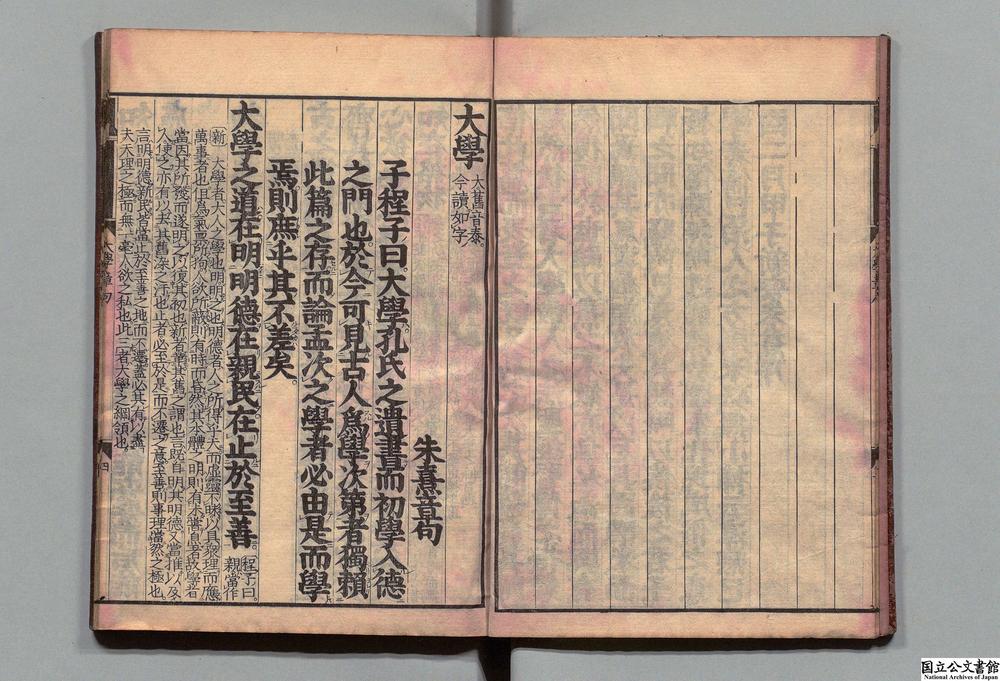 大學
大舊音泰
今讀如字
朱熹章句
子程子曰大學孔氏之遺書而初學入德
之門也於今可見古人爲學次第者獨賴
此篇之存而論孟次之學者必由是而學
焉則庶乎其不差矣
大學之道在明明德在親民在止於至善。
程子曰。
親當作
新 大學者大人之學也明明之也明德者人之所得乎天而虛靈不昧以具衆理而應
萬事者也但爲氣稟所拘人欲所蔽則有時而昏然其本體之明則有未嘗息者故學者
當因其所發而遂明之以復其初也新者革其舊之謂也言既自明其明德又當推以及
人使之亦有以去其舊染之汙也止者必至於是而不遷之意至善則事理當然之極也
言明明德新民皆當止於至善之地而不遷蓋必其有以盡
夫天理之極而無一毫人欲之私也此三者大學之綱領也。
大學章句
四
国立公文書館
National Archives of Japan